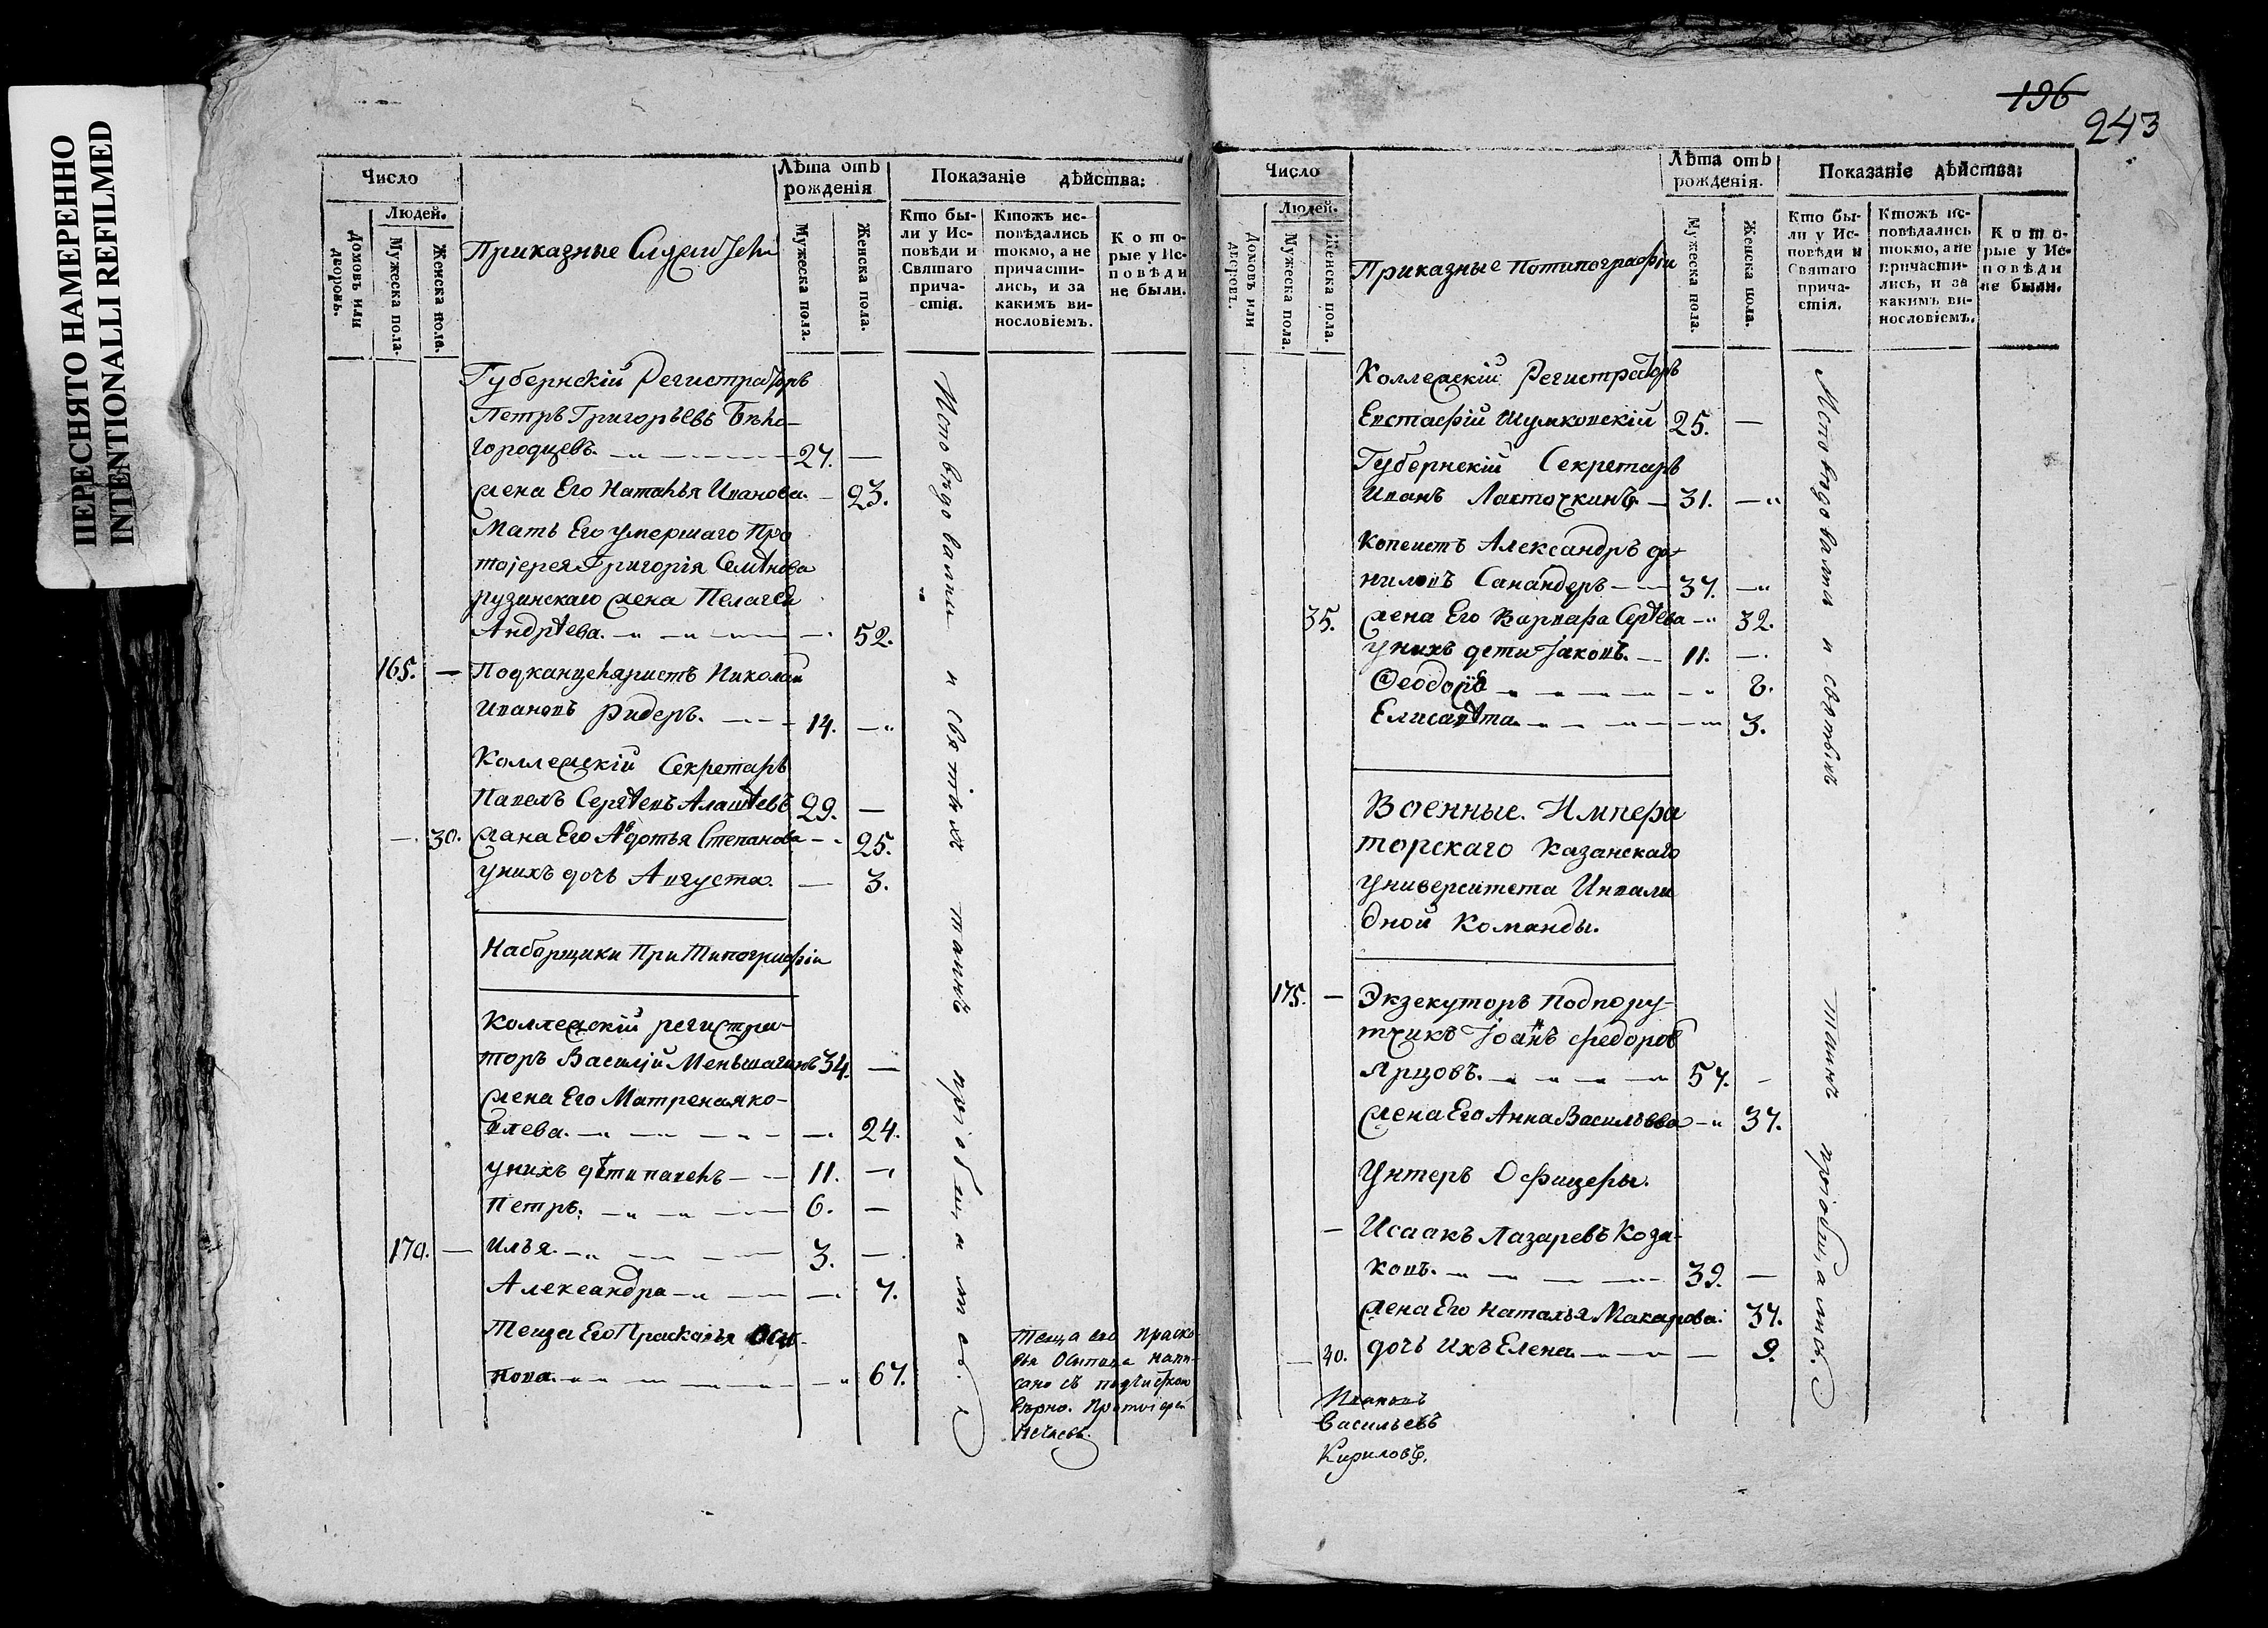 ПЕРЕСНЯТО НАМЕРЕННО
INTENTIONALLI REFILMED
Число
Людей.
домовъ или дворовъ.
Мужеска пола.
Женска пола.
Приказные Служители
Лѣта отъ рожденія
Мужеска пола.
Женска пола.
Показаніе дѣйства:
Кто бы-
ли у Ис-
повѣди и
Святаго
прича-
стія.
Ктожъ ис-
повѣдались
токмо, а не
причасти-
лись, и за
какимъ ви-
нословіемъ.
Кото-
рые у Ис-
повѣди
не были.
Губернскій Регистраторъ
Петръ Григорьевъ Бѣло-
городцевъ. 27. —
жена Его Наталья Иванова. — 23.
Мать Его умершаго Про
тоіерея Григорія Семѣнова
рузинскаго жена Пелагея
Андрѣева. — 52.
165. — Подканцеляристъ Николай
Ивановъ Ридеръ. 14. —
Коллежскій Секретарь
Павелъ Сергѣевъ Алашѣевъ 29. —
— 30. жана Его Авдотья Степанова — 25.
унихъ дочь Августа. — 3.
Наборщики При Типографіи
Коллежскій регистра-
торъ Василій Меньшагинъ 34. —
жена Его Матрена яко-
влева. — 24.
унихъ дѣти павелъ — 11. —
Петръ. 6. —
170. — Илья. 3. —
Александра — 7.
Теща Его Прасковья Оси-
пова. — 67.
Исповѣдовались и святыхъ таинъ пріобщались.
Теща его Праско
вья Осипова напи-
сано съ подчисткою
вѣрно. Протоіерей
Нечаевъ.
196
243
Число
Людей.
Домовъ или дворовъ.
Мужеска пола.
Женска пола.
Приказные Потипографіи
Лѣта отъ рожденія.
Мужеска пола.
Женска пола.
Показаніе дѣйства:
Кто бы-
ли у Ис-
повѣди и
Святаго
прича-
стія.
Ктожъ ис-
повѣдались
токмо, а не
причасти-
лись, и за
какимъ ви-
нословіемъ.
Кото-
рые у Ис-
повѣди
не были.
Коллежскій Регистраторъ
Евстафій Шумковскій 25. —
Губернскій Секретарь
Иванъ Ласточкинъ. — 31. —
Копеистъ Александръ да-
ниловъ Санандеръ — 37. —
35. жена Его Варвара Сергѣева — 32.
унихъ дети Іаковъ. — 11. —
Ѳеодосія — 8.
Елисавѣта. — 3.
Военные. Импера
торскаго Казанскаго
Университета Инвали
дной Команды.
175. — Экзекуторъ Подпору-
тчикъ Іоаннъ Федоров
Ярцовъ. 57. —
жена Его Анна Васильева — 37.
Унтеръ Офицеры.
— Исаакъ Лазаревъ Коза-
ковъ. 39. —
жена Его Наталья Макарова: 37.
— 40. дочь Ихъ Елена. — 9.
Исповѣдовались и святыхъ таинъ пріобщались.
Васильевъ
Кириловъ.